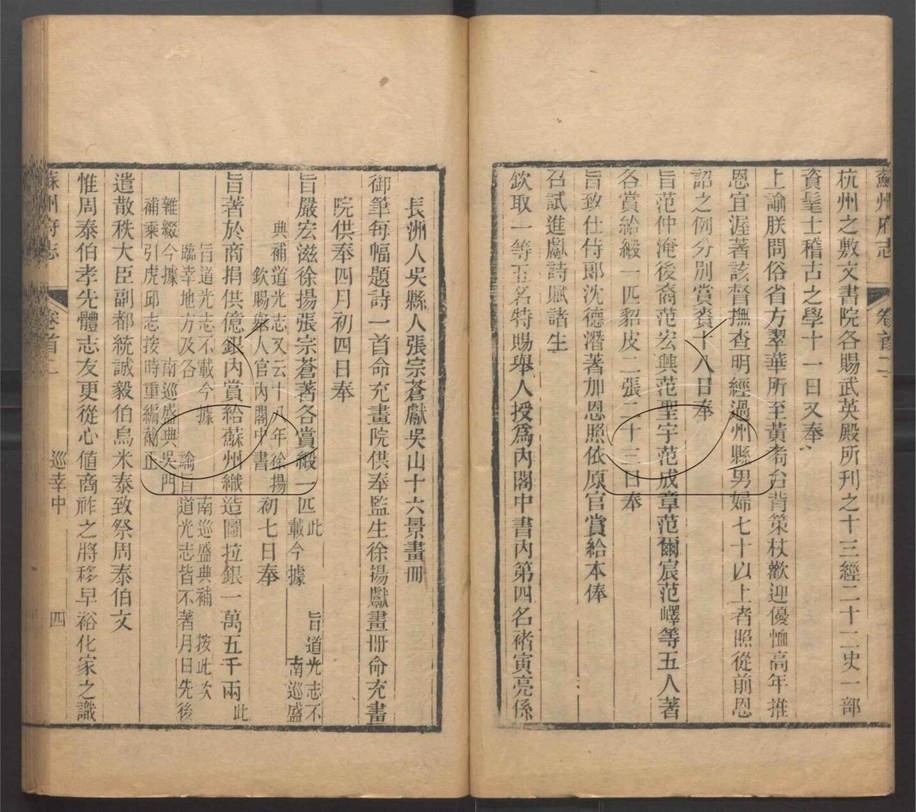 蘇州府志 卷首二
杭州之敷文書院各賜武英殿所刊之十三經二十二史一部
資髦士稽古之學十一日又奉
上諭朕問俗省方翠華所至黃耇台背策杖歡迎優恤高年推
恩宜渥著該督撫查明經過州縣男婦七十以上者照從前恩
詔之例分別賞賚十八日奉
旨范仲淹後裔范宏興范聖宇范成章范爾宸范嶧等五人著
各賞給緞一匹貂皮二張二十三日奉
旨致仕侍郎沈德潛著加恩照依原官賞給本俸
召試進獻詩賦諸生
欽取一等五名特賜舉人授為內閣中書內第四名褚寅亮係
長洲人吳縣人張宗蒼獻吳山十六景畫冊
御筆每幅題詩一首命充畫院供奉監生徐揚獻畫冊命充畫
院供奉四月初四日奉
旨嚴宏滋徐揚張宗蒼著各賞緞一匹此旨道光志不
載今據南巡盛
典補道光志又云十八年徐揚
欽賜舉人官內閣中書
初七日奉
旨著於商捐供億銀內賞給蘇州織造圖拉銀一萬五千兩此
旨道光志不載今據南巡盛典補按此次
臨幸地方及各諭旨道光志皆不著月日先後
雜綴今據南巡盛典吳門
補乘引虎邱志按時重編補正
遣散秩大臣副都統誠毅伯烏米泰致祭周泰伯文
惟周泰伯孝先體志友更從心值商祚之將移早裕化家之識
蘇州府志 卷首二 巡幸中 四